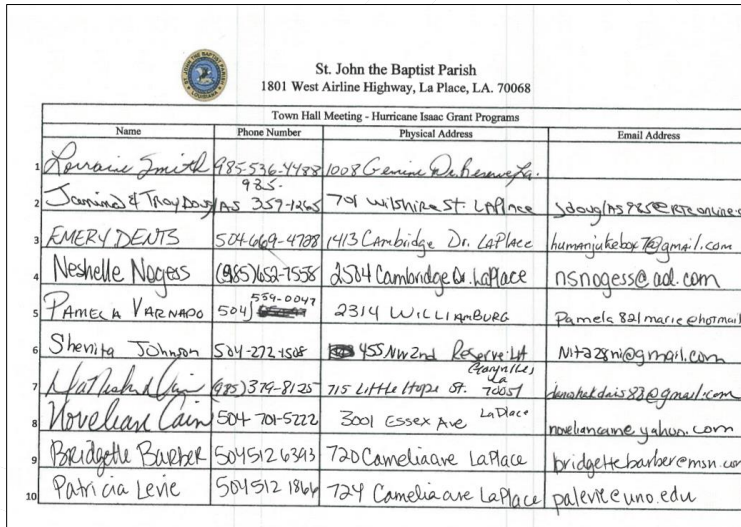 St. John the Baptist Parish
1801 West Airline Highway, La Place, LA. 70068
Town Hall Meeting - Hurricane Isaac Grant Programs
Name Phone Number Physical Address Email Address
1 Lorraine Smith 985-536-4488 1008 Gemini Dr. Reserve La.
2 Jamind & Troy Douglas 985- 359-1265 701 Wilshire St. LAPlace
3 EMERY DENTS 504-669-4728 1413 Cambridge Dr. LAPlace humanjukebox7@gmail.com
4 Neshelle Nogess (985)652-7558 2504 Cambridge Dr. LaPlace nsnogess@aol.com
5 PAMELA VARNADO 504) 559-0047 2314 WILLIAMBURG Pamela821marie@hotmail
6 Shenita Johnson 504-272-1508 455 NW 2nd Reserve LA Nita28ni@gmail.com
7 Cain (985)379-8125 715 Little Hope St. Garyville, La 70051 @gmail.com
8 Novelian Cain 504-701-5222 3001 Essex Ave LaPlace noveliancain@yahoo.com
9 Bridgette Barber 504 512 6393 720 Camelia ave LaPlace bridgettebarber@msn.com
10 Patricia Levie 504 512 1866 724 Camelia ave LaPlace palevie@uno.edu